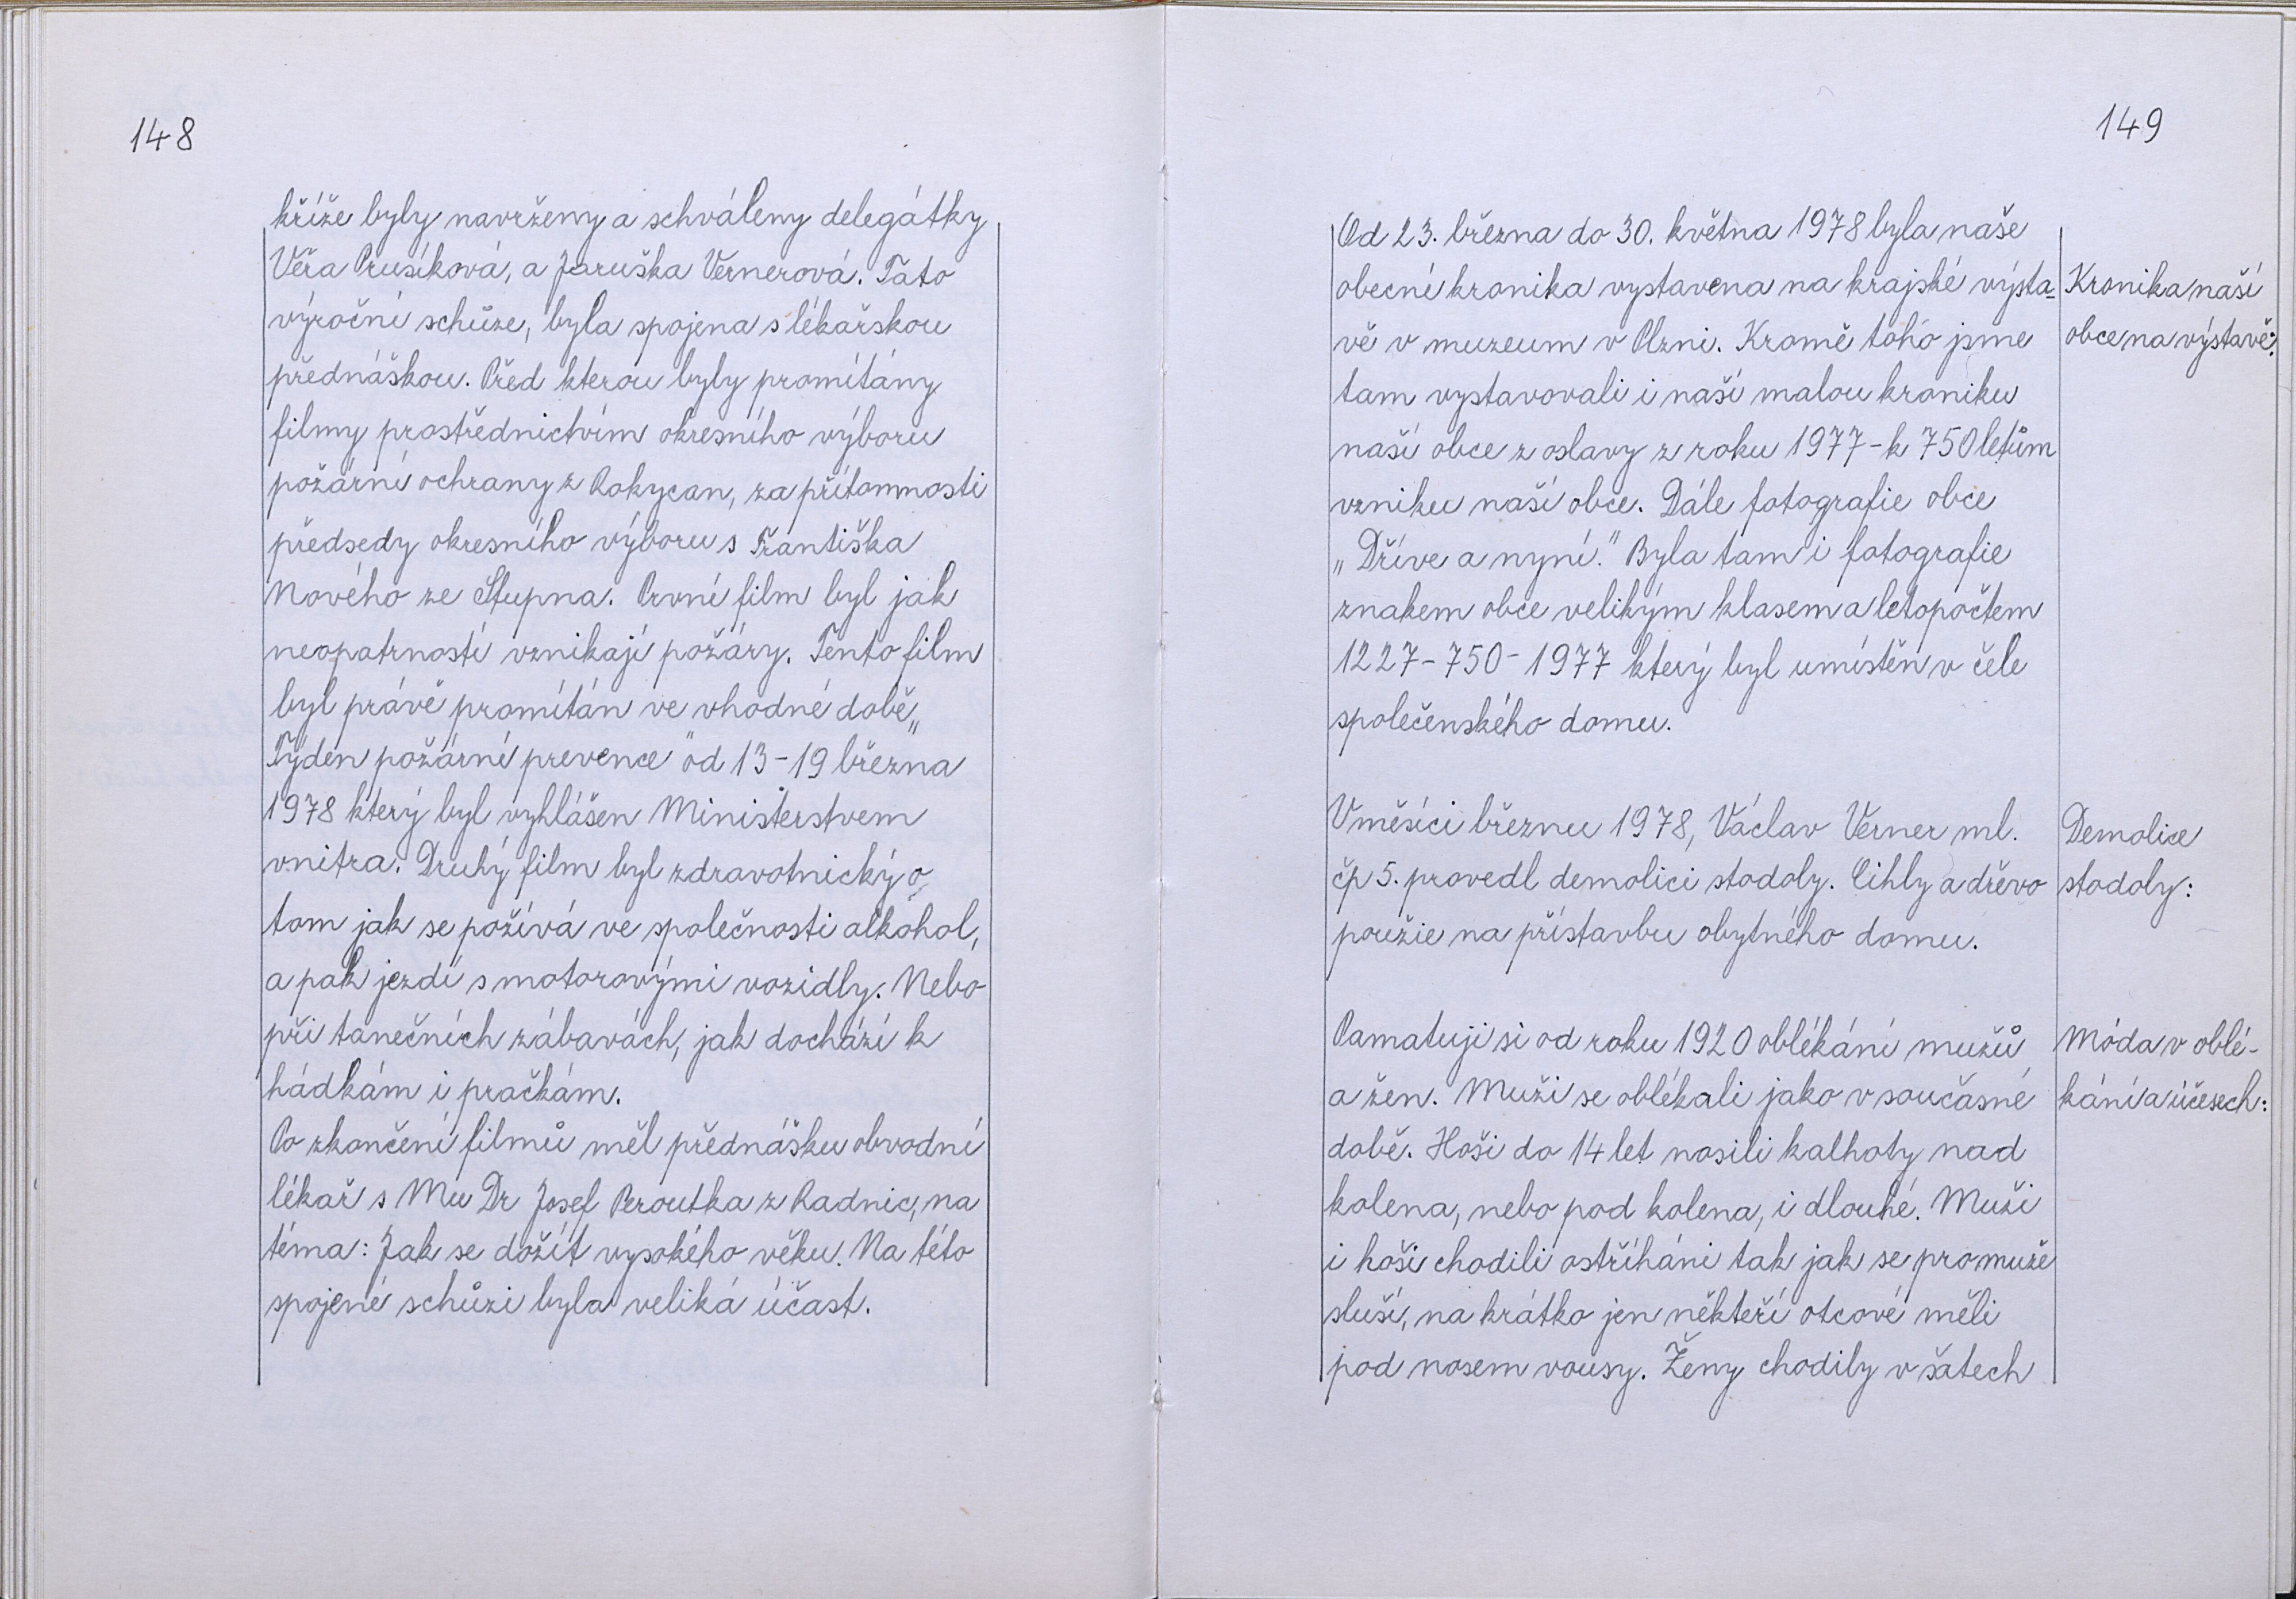 148
kříže byly navrženy a schváleny delegátky
Věra Prusíková, a Jaruška Vernerová. Tato
výroční schůze, byla spojena s lékařskou
přednáškou. Před kterou byly promítány
filmy prostřednictvím okresního výboru
požární ochrany z Rokycan, za přítomnosti
předsedy okresního výboru s Františka
Nového ze Stupna. První film byl jak
neopatrností vznikají požáry. Tento film
byl právě promítán ve vhodné době„
Týden požární prevence" od 13-19 března
1978 který byl vyhlášen Ministerstvem
vnitra. Druhý film byl zdravotnický o
tom jak se požívá ve společnosti alkohol,
a pak jezdí s motorovými vozidly. Nebo
při tanečních zábavách, jak dochází k
hádkám i pračkám.
Po zkončení filmů měl přednášku obvodní
lékař s Mu Dr Josef Peroutka z Radnic, na
téma: Jak se dožít vysokého věku. Na této
spojené schůzi byla veliká účast.
149
Od 23. března do 30. května 1978 byla naše
obecní kronika vystavena na krajské výsta=
vě v muzeum v Plzni. Kromě toho jsme
tam vystavovali i naší malou kroniku
naší obce z oslavy z roku 1977-k 750 letům
vzniku naší obce. Dále fotografie obce
„Dříve a nyní." Byla tam i fotografie
znakem obce velikým klasem a letopočtem
1227-750-1977 který byl umístěn v čele
společenského domu.
Kronika naší
obce na výstavě:
V měsíci březnu 1978, Václav Verner ml.
čp 5. provedl demolici stodoly. Cihly a dřevo
použie na přístavbu obytného domu.
Demolice
stodoly:
Pamatuji si od roku 1920 oblékání mužů
a žen. Muži se oblékali jako v současné
době. Hoši do 14 let nosili kalhoty nad
kolena, nebo pod kolena, i dlouhé. Muži
i hoši chodili ostříháni tak jak se pro muže
sluší, na krátko jen někteří otcové měli
pod nosem vousy. Ženy chodily v šatech
Móda v oblé-
kání a účesech: